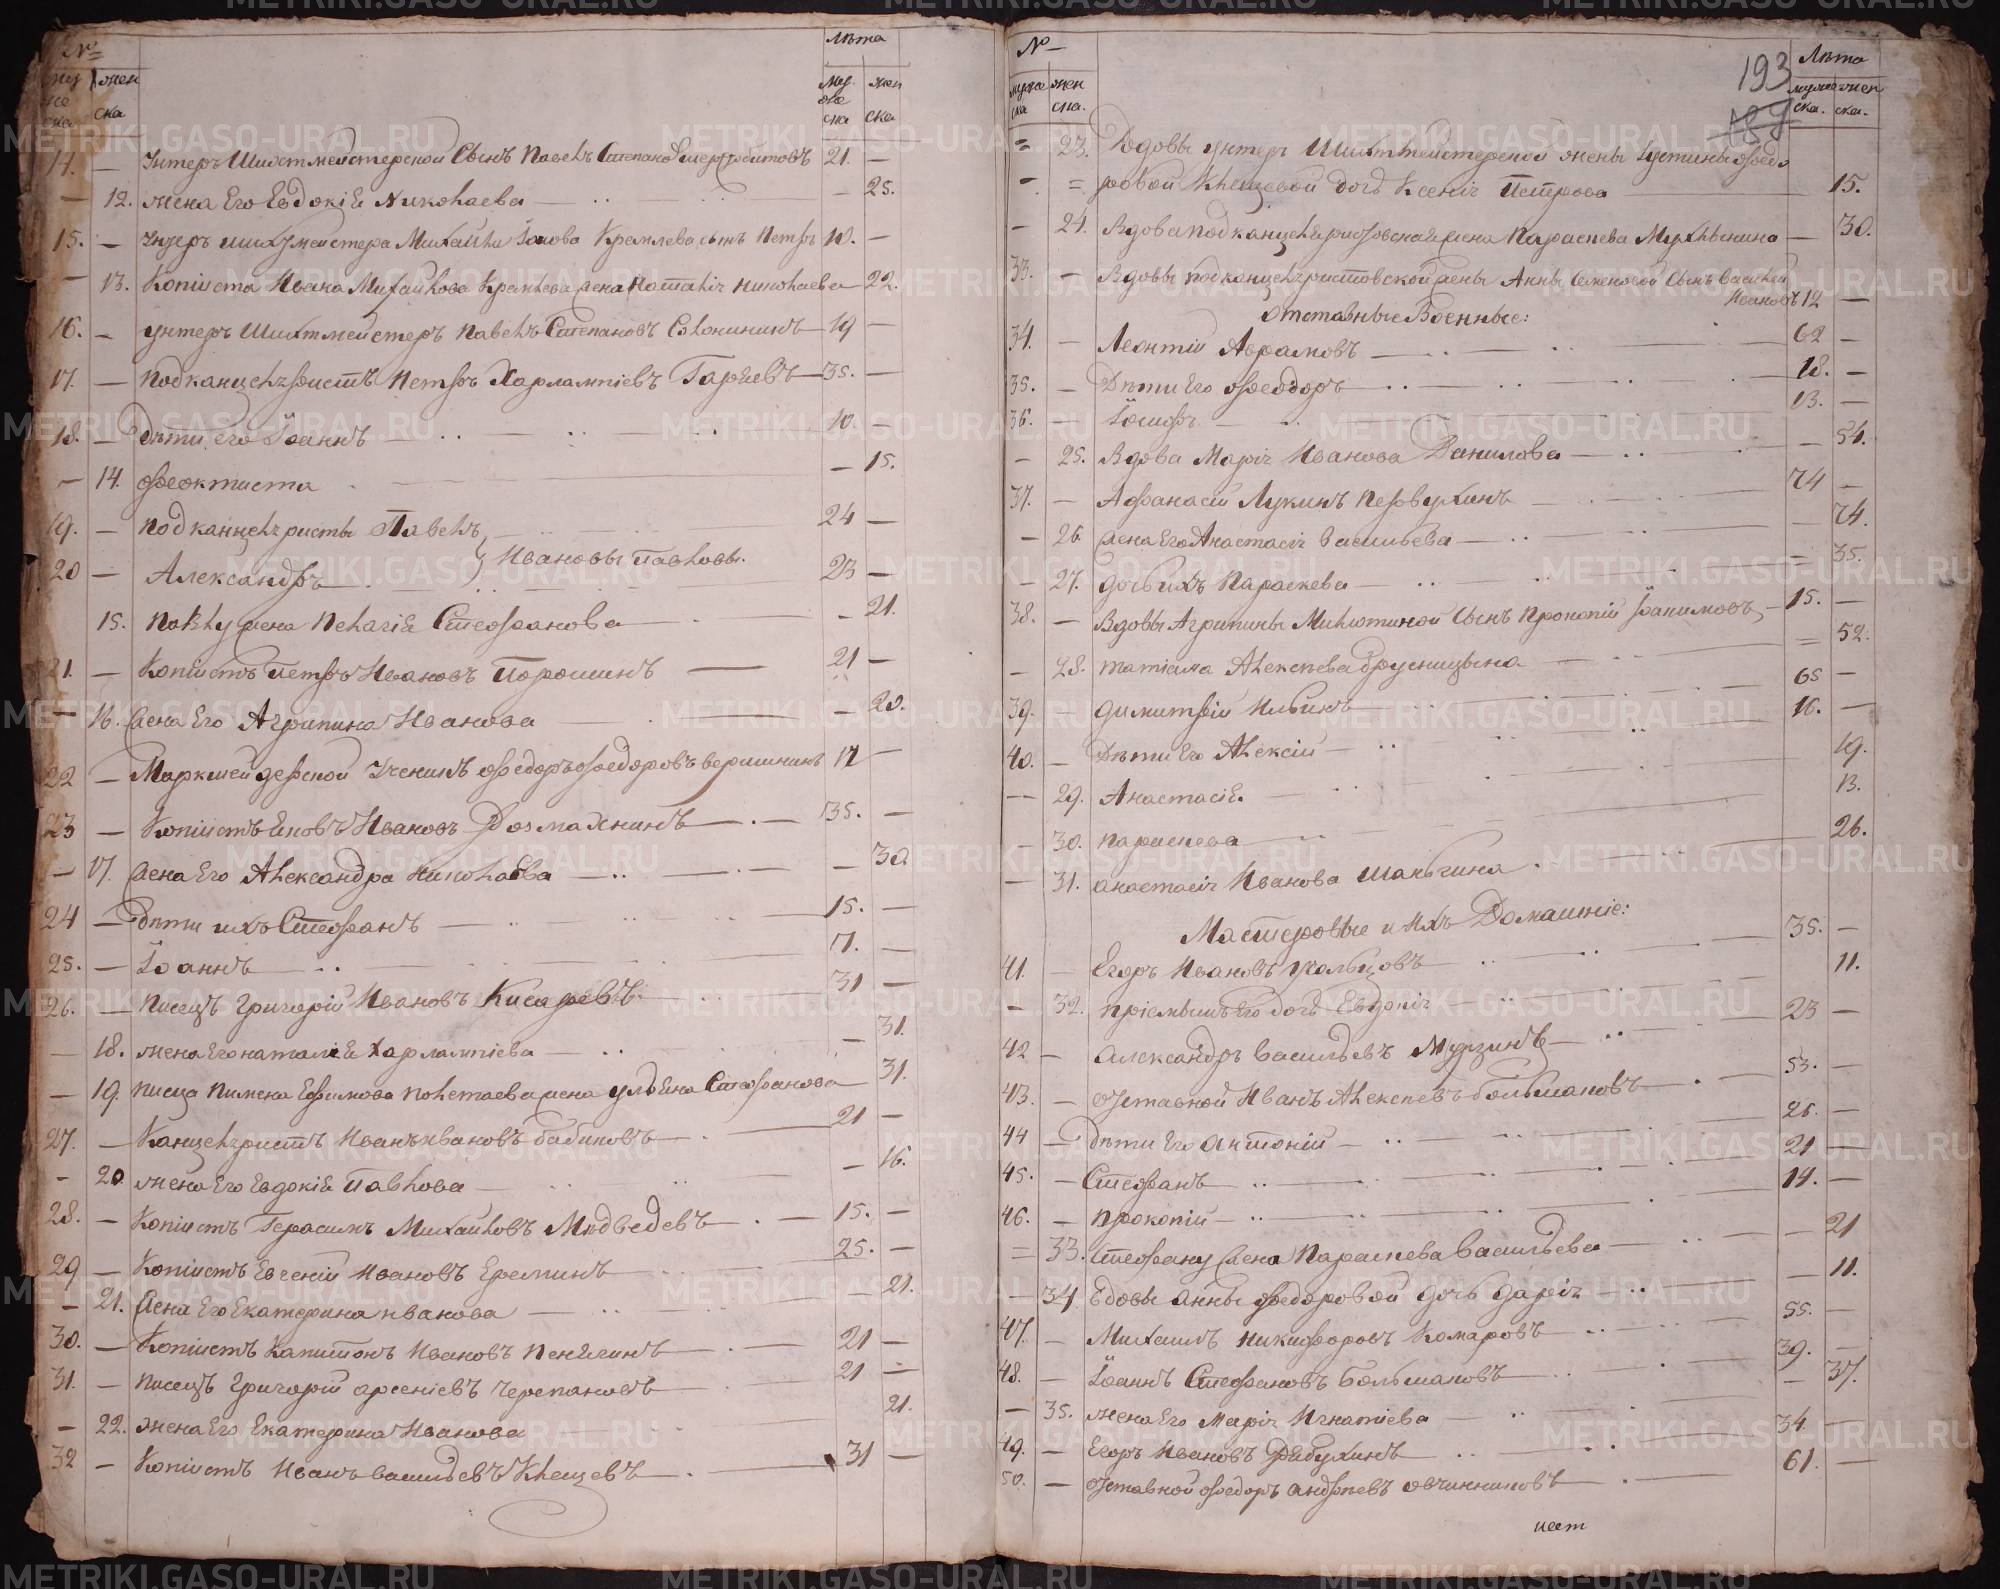 №
муже ска
жен ска
Лѣта
муже ска
жен ска
14. — Унтеръ Шихтмейстерской Сынъ Павелъ Степановъ 21. —
— 12. жена Его Евдокіѧ Николаева — 25.
15. — Унтеръ шихтмейстера Михайла Іонова Кремлева сынъ Петръ 10. —
— 13. Копіиста Ивана Михайлова Кремлева жена Наталіѧ Николаева — 22.
16. — унтеръ Шихтмейстеръ Павелъ Степановъ 19 —
17. — Подканцелѧристъ Петръ Харлампіевъ Гаряевъ 35. —
18. — Дѣти его Іоаннъ 10. —
— 14. Феоктиста — 15.
19. — Подканцелѧристы Павелъ 24 —
Ивановы Павловы.
20 — Александръ 23 —
15. Павлу жена Пелагіѧ Стефанова — 21.
21. — Копіистъ Петръ Ивановъ Порошинъ 21 —
— 16. жена Его Агрипина Иванова — 20.
22 — Маркшейдерской Ученикъ Федоръ Федоровъ вершининъ 17 —
23 — Копіистъ Яковъ Ивановъ 35. —
— 17. жена Его Александра Николаева — 30.
24 — Дѣти ихъ Стефанъ 15. —
25. — Іоаннъ 11. —
26. — Писецъ Григорій Ивановъ Кисаревъ 31 —
— 18. жена Его наталіѧ Харлампіева — 31.
— 19. писца Пимена Ефимова Полетаева жена ульѧна Стефанова 31.
27. — Канцелѧристъ Иванъ Ивановъ бабиновъ 21 —
— 20. жена Его Евдокіѧ Павлова — 16.
28. — Копіистъ Герасимъ Михайловъ Медведевъ 15. —
29 — Копіистъ Евгеній Ивановъ Ереминъ 25. —
— 21. жена Его Екатерина иванова — 21.
30. — Копіистъ Капитонъ Ивановъ 21 —
31. — писецъ Григорій арсеніевъ черепановъ 21 —
— 22. жена Его Екатерина Иванова 21.
32 — Копіистъ Иванъ васильевъ Клещевъ 31 —
193
189
№
муже ска
жен ска.
Лѣта
муже ска.
жен ска.
= 23. Вдовы унтеръ Шихтмейстерской жены Іустины Федо
- = ровой Клещевой дочь Ксеніѧ Петрова 15.
— 24. Вдова подканцелѧристовская жена Параскева Мухлынина — 30.
33. — Вдовы подканцелѧристовской жены Анны Семеновой Сынъ Василей
Ивановъ 12 —
Отставные Военные:
34. — Леонтій Аврамовъ 62 —
35. — Дѣти Его Феодоръ 18. —
36. — Іосифъ 13. —
— 25. Вдова Маріѧ Иванова Данилова — 54.
37. — Афанасій Лукинъ Первухинъ 74 —
— 26 жена Его Анастасіѧ васильева — 74.
— 27. дочь ихъ Параскева = 35.
38. — Вдовы Агрипины Милютиной Сынъ Прокопій 15. —
— 28. татіана Алексѣева брусницына = 52.
39. — димитрій Ильинъ 65 —
40. — Дѣти Его Алексій 16. —
— 29. Анастасіѧ 19.
— 30. параскева 13.
— 31. анастасіѧ Иванова шаньгина 26.
Мастеровые и ихъ Домашніе:
41. — Егоръ Ивановъ укольцовъ 35. —
— 32. пріемышъ Его дочь Евдокіѧ 11.
42 — александръ васильевъ Мурзинъ 23 —
43. — отставной Иванъ Алексѣевъ большаковъ 53. —
44 — дѣти Его антоній 26. —
45. — Стефанъ 21 —
46. — прокопій 14. —
= 33. Стефану жена Параскева васильева — 21
— 34. вдовы анны федоровой дочь даріѧ — 11.
47. — Михаилъ никифоровъ комаровъ 55. —
48. — Іоаннъ Стефановъ большаковъ 39. —
— 35. жена Его маріѧ Игнатіева — 37.
49. — Егоръ Ивановъ Рябухинъ 34 —
50. — отставной федоръ андрѣевъ овчинниковъ 61. —
METRIKI.GASO-URAL.RU